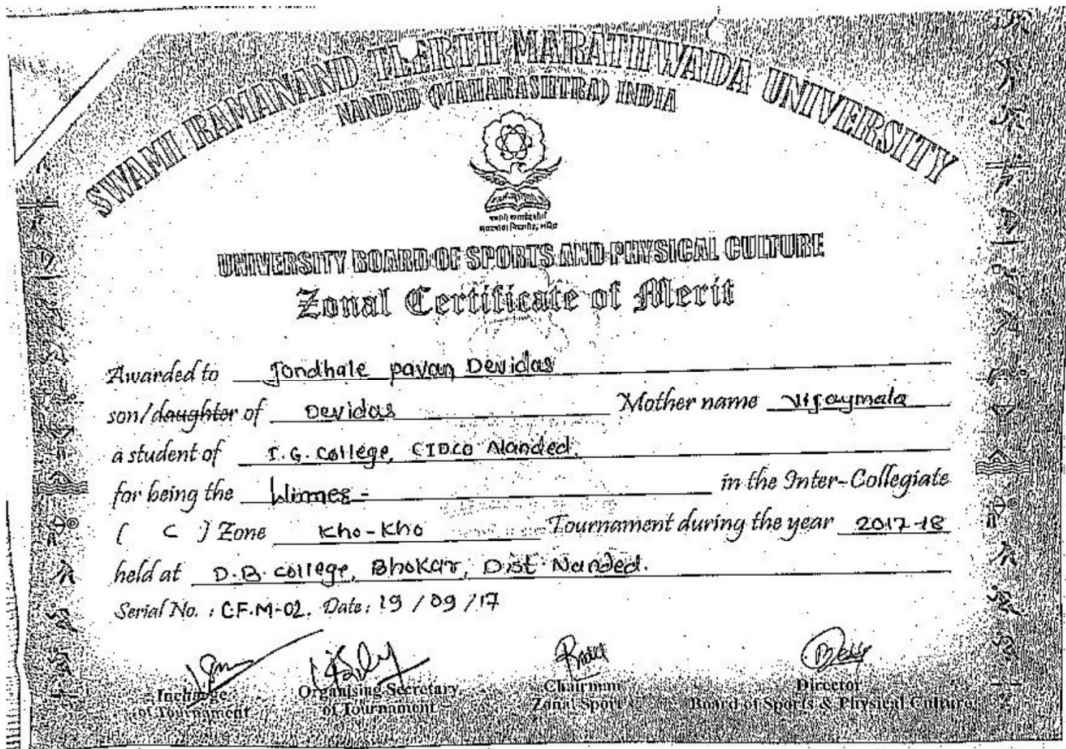 SWAMI RAMANAND TEERTH MARATHWADA UNIVERSITY
NANDED (MAHARASHTRA) INDIA
UNIVERSITY BOARD OF SPORTS AND PHYSICAL CULTURE
Zonal Certificate of Merit
Awarded to Jondhale pavan Devidas
son/daughter of Devidas Mother name Vijaymala
a student of I.G. College, CIDCO Nanded.
for being the Winner - in the Inter-Collegiate
( C ) Zone Kho-Kho Tournament during the year 2017-18
held at D.B. College, Bhokar, Dist. Nanded.
Serial No. : C.F.M-02. Date: 19 / 09 / 17
Incharge of Tournament
Organising Secretary of Tournament
Chairman Zonal Sports
Director Board of Sports & Physical Culture